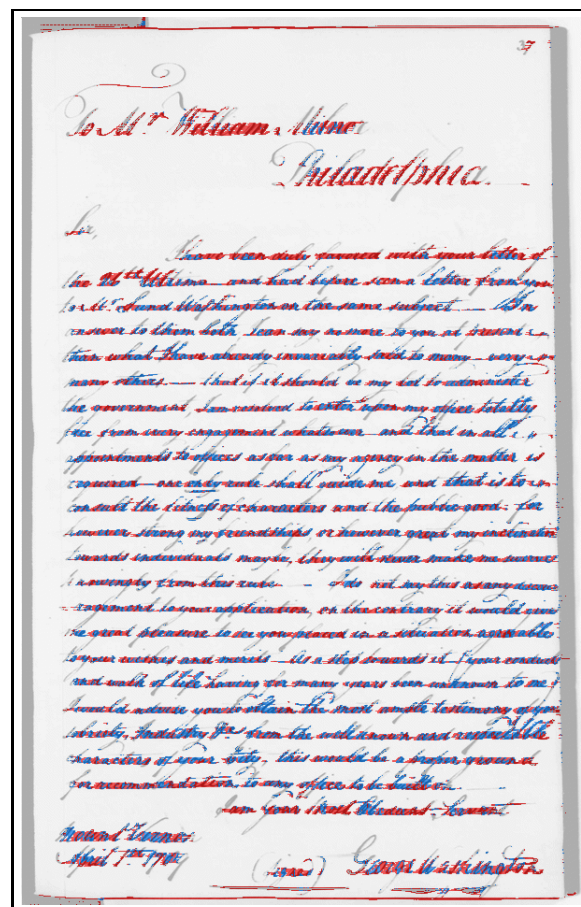 37
To Mr. William Milnor
Philadelphia.
Sir,
I have been duly favored with your letter of
the 26th Ultimo and had before seen a letter from you
to Mr. Lund Washington on the same subject — In
answer to them both I can say no more to you at present
than what I have already invariably said to many — very
many others. — that if it should be my lot to administer
the government, I am resolved to enter upon my office totally
free from every engagement whatever and that in all
appointments to offices as far as my agency in the matter is
required one only rule shall guide me and that is to con
sult the fitness of characters and the public good. for
however strong my friendships, or however great my inclination
towards individuals may be, they will never make me swerve
knowingly from this rule. — I do not say this as any discou
ragement to your application, on the contrary it would give
me great pleasure to see you placed in a situation agreeable
to your wishes and merits. As a step towards it (your conduct
and walk of life having for many years been unknown to me)
I would advise you to obtain the most ample testimony of your
sobriety, Industry &c. from the well known and respectable
characters of your City. this would be a proper ground
for recommendation to any office to be built on.
I am Your Most Obedient Servant
Mount Vernon
April 1st. 1789
(signed) George Washington